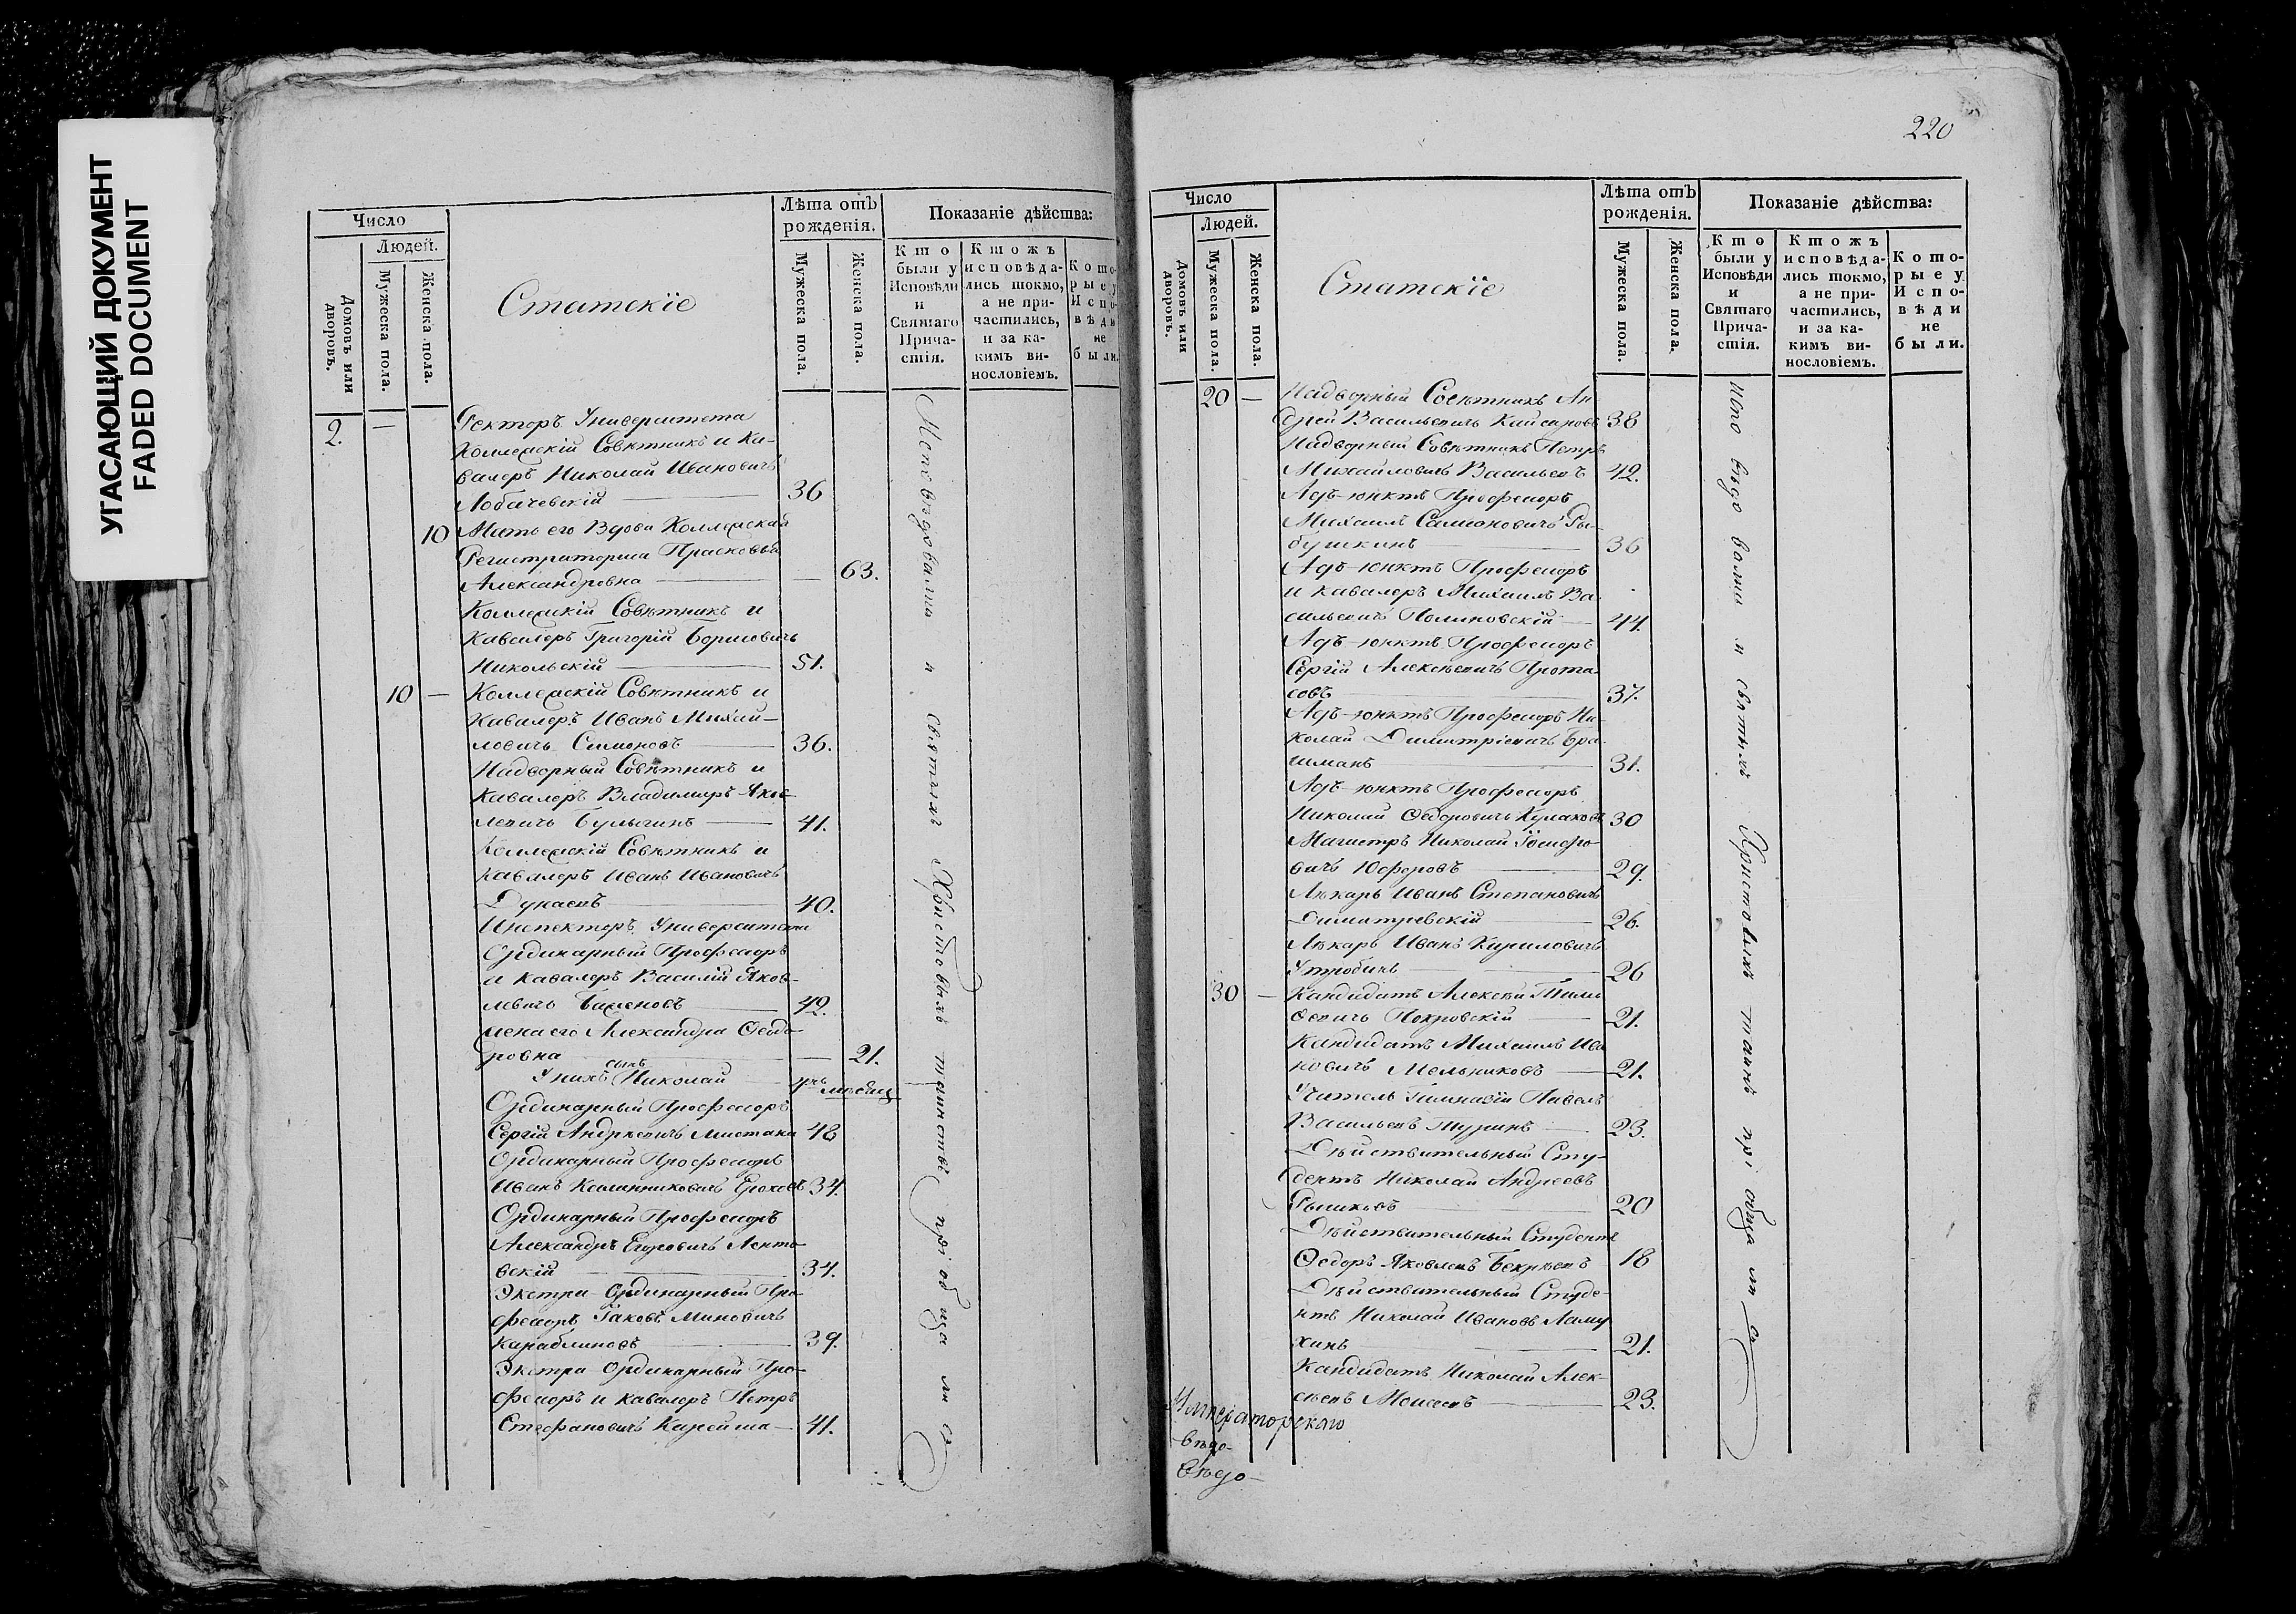 УГАСАЮЩИЙ ДОКУМЕНТ
FADED DOCUMENT
Число
Людей.
Домовъ или дворовъ.
Мужеска пола.
Женска пола.
Статскіе
Лѣта отъ
рожденія.
Мужеска пола.
Женска пола.
Показаніе дѣйства:
Кто
были у
Исповѣди
и
Святаго
Прича-
стія.
Ктожъ
исповѣда-
лись токмо,
а не при-
частились,
и за ка-
кимъ ви-
нословіемъ.
Кото-
рые у
Испо-
вѣди
не
были.
2. — Ректоръ Университета
Коллежскій Совѣтникъ и Ка-
валеръ Николай Ивановичъ
Лобачевскій — 36
10 Мать его Вдова Коллежская
Регистраторша Прасковья
Александровна — 63.
Коллежскій Совѣтникъ и
Кавалеръ Григорій Борисовичъ
Никольскій — 51.
10 — Коллежскій Совѣтникъ и
Кавалеръ Иванъ Михай-
ловичъ Симоновъ — 36.
Надворный Совѣтникъ и
Кавалеръ Владимиръ Яков-
левичъ Булыгинъ — 41.
Коллежскій Совѣтникъ и
Кавалеръ Иванъ Ивановичъ
Дунаевъ — 40.
Инспекторъ Университета
Ординарный Професоръ
и Кавалеръ Василій Яков-
левичъ Баженовъ — 42.
жена его Александра Ѳеодо-
ровна — 21.
У нихъ сынъ Николай — 4ре мѣсяц
Ординарный Професоръ
Сергій Андреевичъ Мистаки 48
Ординарный Професоръ
Иванъ Ерохов 34.
Ординарный Професоръ
Александръ Егоровичъ Ленто-
вскій — 34.
Экстра-Ординарный Про-
фесоръ Іаковъ Миновичъ
Караблиновъ — 39.
Экстра Ординарный Про-
фесоръ и Кавалеръ Петръ
Стефановичъ — 41.
Исповѣдовались и святыхъ Христовыхъ таинствъ пріобщались
220
Число
Людей.
Домовъ или дворовъ.
Мужеска пола
Женска пола.
Статскіе
Лѣта отъ
рожденія.
Мужеска пола.
Женска пола.
Показаніе дѣйства:
Кто
были у
Исповѣди
и
Святаго
Прича-
стія.
Ктожъ
исповѣда-
лись токмо,
а не при-
частились,
и за ка-
кимъ ви-
нословіемъ.
Кото-
рые у
Испо-
вѣди
не
были.
20 — Надворный Совѣтникъ Ан
дрей Васильевичъ Кайсаровъ 38
Надворный Совѣтникъ Петръ
Михайловичъ Васильевъ 42.
Адъ-юнктъ Професоръ
Михаилъ Самсоновичъ Ры-
бушкинъ — 36
Адъ-юнктъ Професоръ
и Кавалеръ Михаилъ Ва-
сильевичъ Полиновскій — 44.
Адъ-юнктъ Професоръ
Сергій Алексѣевичъ Прота-
совъ — 37.
Адъ-юнктъ Професоръ Ни-
колай Димитріевичъ Бра-
шманъ — 31.
Адъ-юнктъ Професоръ
Николай Ѳедоровичъ 30
Магистръ Николай
вичъ Юферовъ — 29.
Лѣкарь Иванъ Степановичъ
Димитревскій — 26.
Лѣкарь Иванъ Кириловичъ
Утробинъ — 26
30 — Кандидатъ Алексѣй Тимо
ѳеевичъ Покровскій — 21.
Кандидатъ Михаилъ Ива
новичъ Мельниковъ — 21.
Учитель Гимназіи Павелъ
Васильевъ Туринъ — 23.
Дѣйствительный Сту-
дентъ Николай Андреевъ
— 20
Дѣйствительный Студентъ
Ѳедоръ Яковлевъ 18
Дѣйствительный Студе-
нтъ Николай Ивановъ
— 21.
Кандидатъ Николай Алек-
сѣевъ Моисеевъ — 23.
Исповѣдовались и святыхъ Христовыхъ таинъ пріобщались
Императорскаго